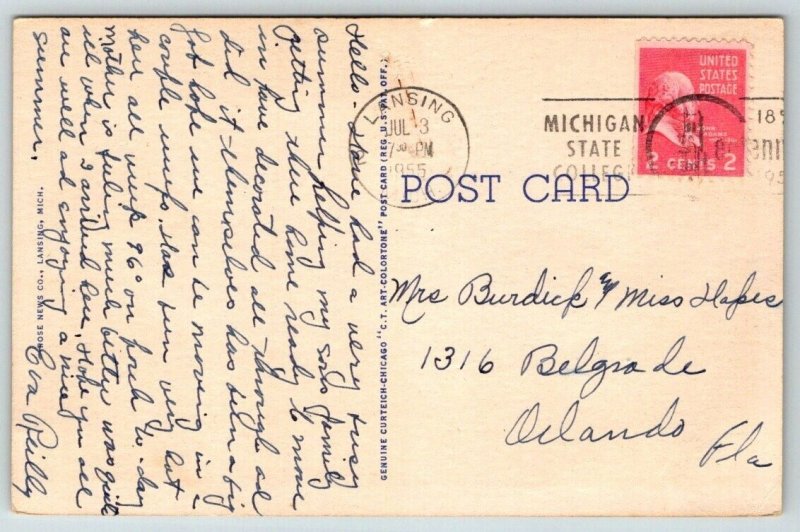 Hello - Have had a very busy
summer helping my son's family
getting their home ready to move
in have decorated all through ad
did it themselves has been a big
job hope we can be moving in a
couple weeks. Has been very hot
here all week 96° on porch to-day
Mother is feeling much better was quite
ill when I arrived here. Hope you all
are well ad enjoying a nice
summer.
Eva Reilly
ROSE NEWS CO., LANSING, MICH.
GENUINE CURTEICH-CHICAGO "C.T. ART-COLORTONE" POST CARD (REG. U.S. PAT. OFF.)
POST CARD
LANSING
JUL 3
PM
1955
MICHIGAN
STATE
COLLEGE
UNITED
STATES
POSTAGE
JOHN
ADAMS
2 CENTS 2
Mrs Burdick & Miss Hapes
1316 Belgrade
Orlando
Fla